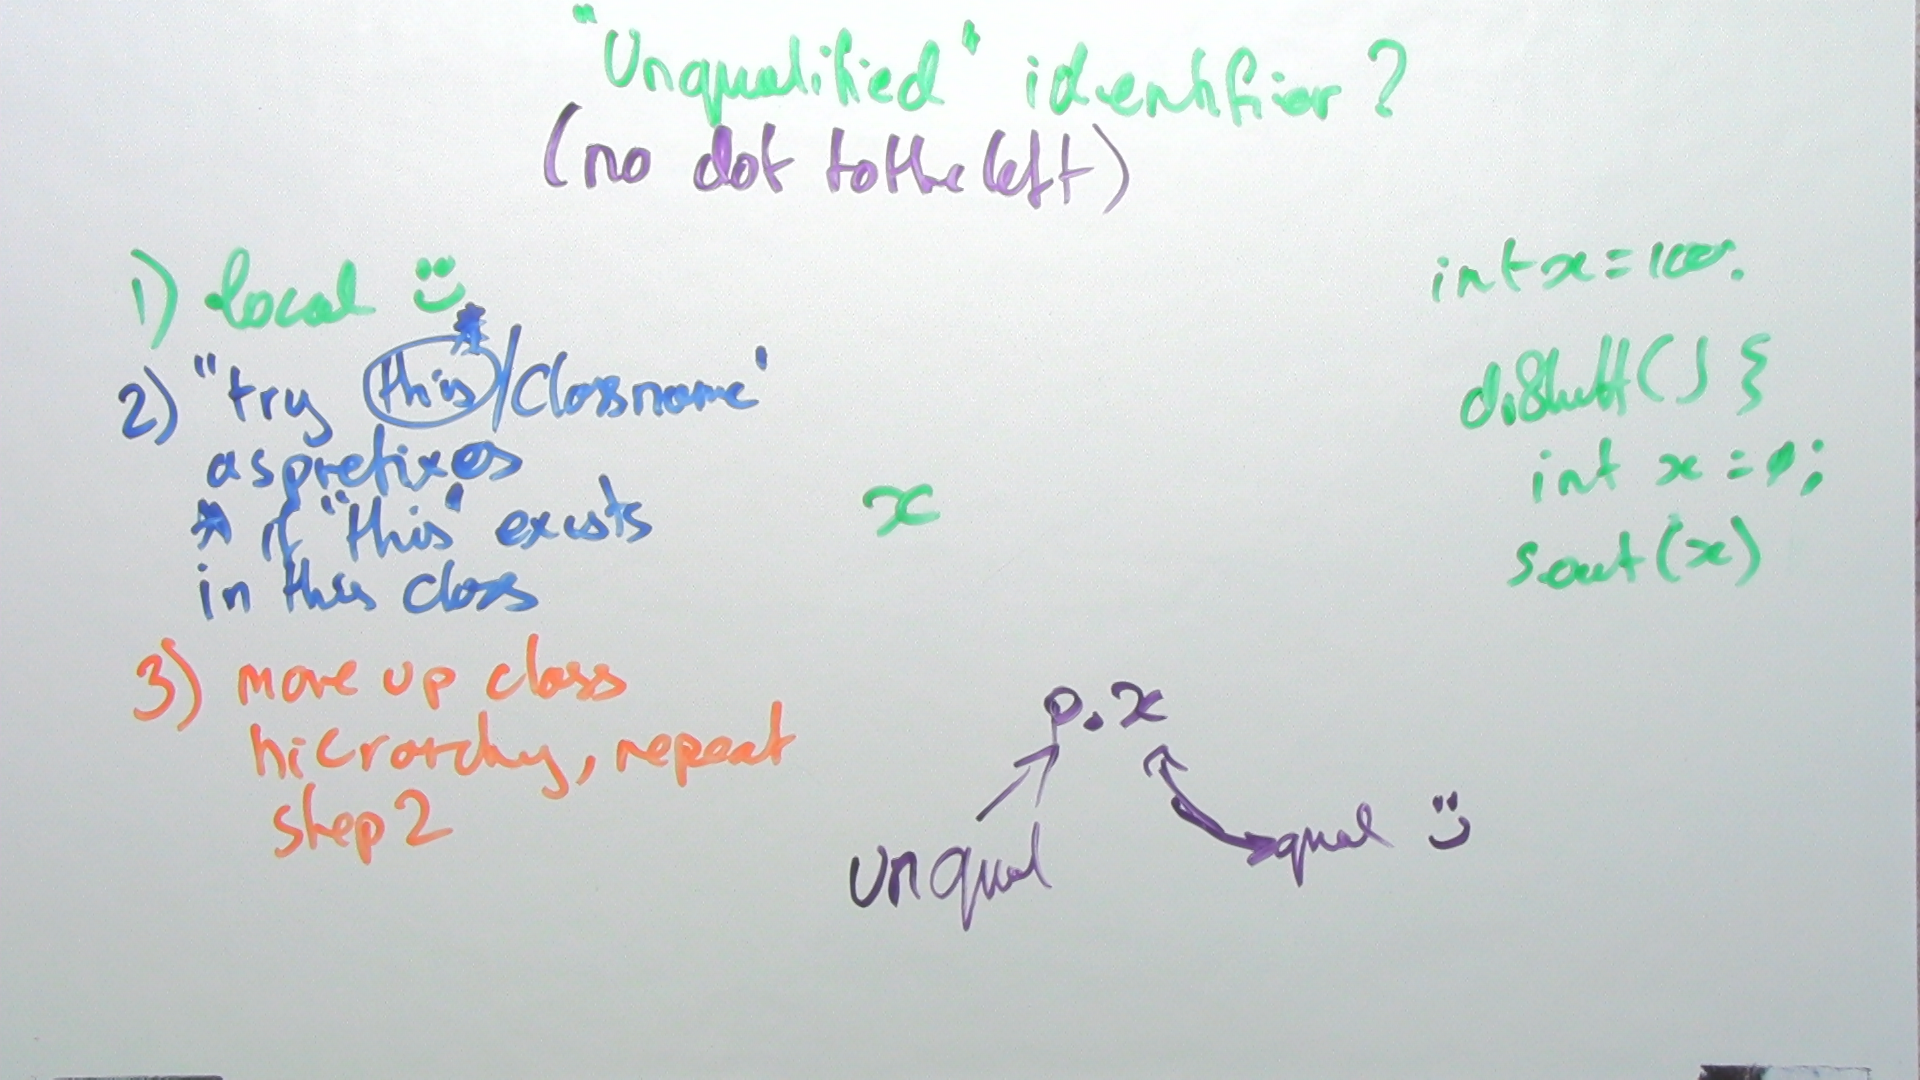 "Unqualified" identifier?
(no dot to the left)
1) local
2) "try this*/Classname"
as prefixes
* if "this" exists
in this class
3) move up class
hierarchy, repeat
step 2
x
p.x
unqual
qual
int x = 100.
doStuff() {
int x =
sout(x)